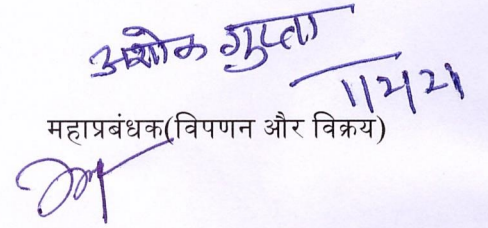 अशोक गुप्ता
1/2/21
महाप्रबंधक(विपणन और विक्रय)